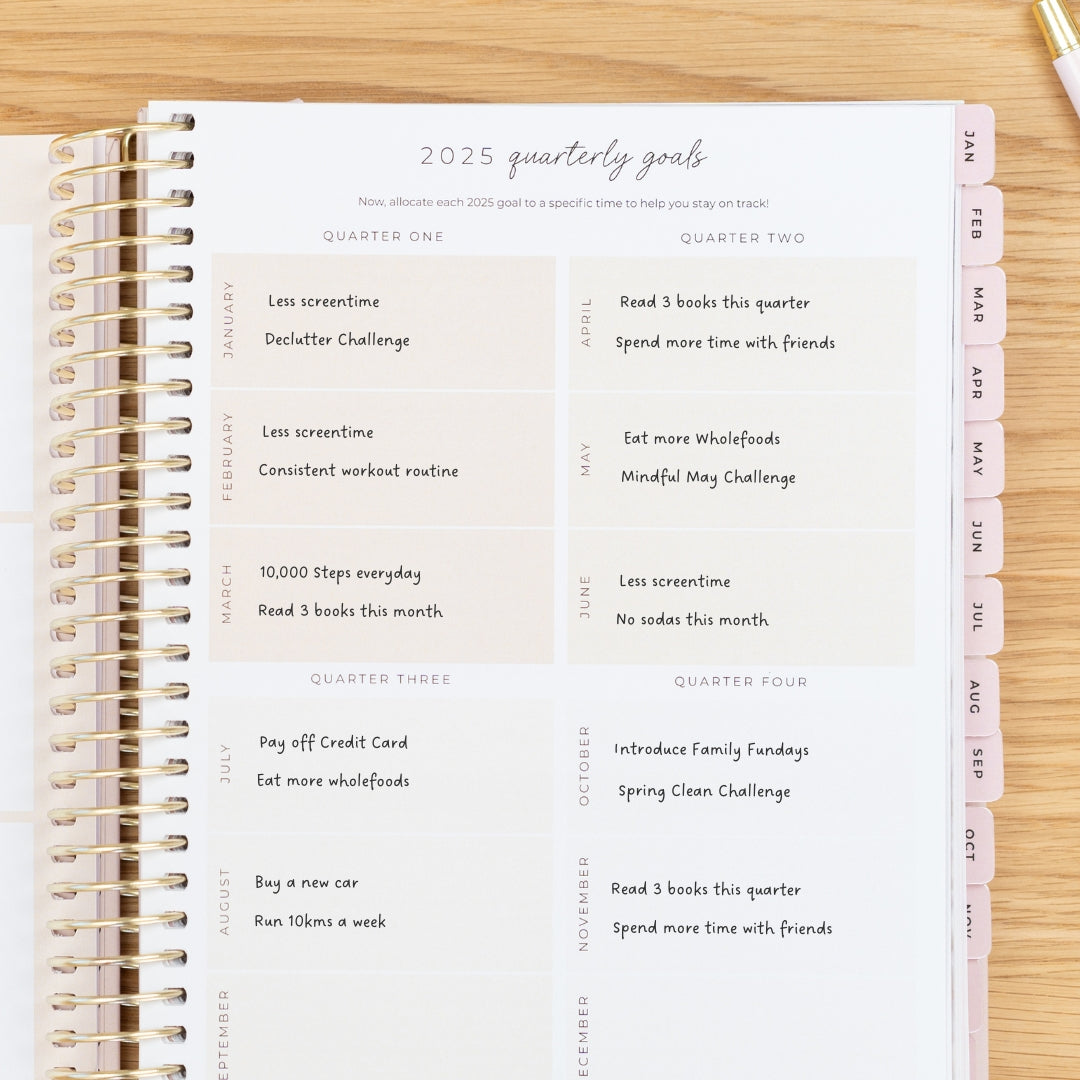 2025 quarterly goals
Now, allocate each 2025 goal to a specific time to help you stay on track!
QUARTER ONE
JANUARY
Less screentime
Declutter Challenge
FEBRUARY
Less screentime
Consistent workout routine
MARCH
10,000 Steps everyday
Read 3 books this month
QUARTER TWO
APRIL
Read 3 books this quarter
Spend more time with friends
MAY
Eat more Wholefoods
Mindful May Challenge
JUNE
Less screentime
No sodas this month
QUARTER THREE
JULY
Pay off Credit Card
Eat more wholefoods
AUGUST
Buy a new car
Run 10kms a week
EPTEMBER
QUARTER FOUR
OCTOBER
Introduce Family Fundays
Spring Clean Challenge
NOVEMBER
Read 3 books this quarter
Spend more time with friends
ECEMBER
JAN
FEB
MAR
APR
MAY
JUN
JUL
AUG
SEP
OCT
NOV